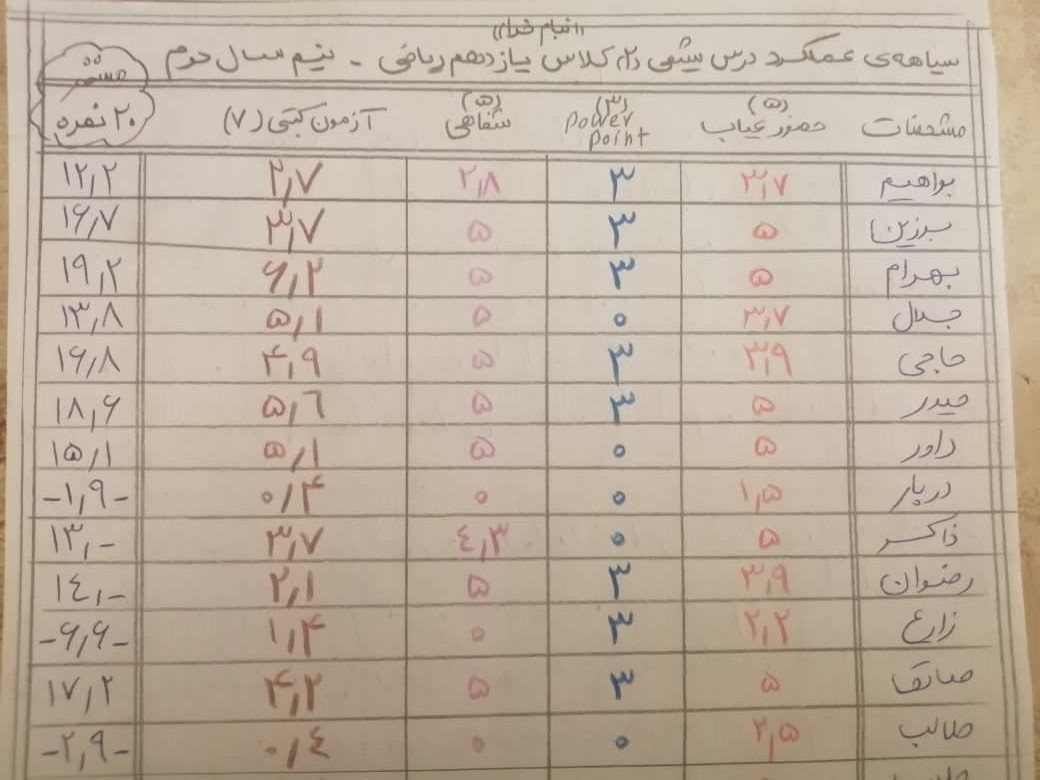 (بنام خدا)
سیاهه‌ی عملکرد درس شیمی (۲) کلاس یازدهم ریاضی - نیم سال دوم
مستمر
۲۰ نمره
مشخصات حضور غیاب (۵) Power Point (۳) شفاهی (۵) آزمون کتبی (۷)
براهیم ۳,۷ ۳ ۲,۸ ۲,۷ ۱۲,۲
برزین ۵ ۳ ۵ ۳,۷ ۱۶,۷
بهرام ۵ ۳ ۵ ۶,۲ ۱۹,۲
جلال ۳,۷ ۰ ۵ ۵,۱ ۱۳,۸
حاجی ۳,۹ ۳ ۵ ۴,۹ ۱۶,۸
حیدر ۵ ۳ ۵ ۵,۶ ۱۸,۶
داور ۵ ۰ ۵ ۵,۱ ۱۵,۱
دربار ۱,۵ ۰ ۰ ۰,۴ -۱,۹-
ذاکر ۵ ۰ ۴,۳ ۳,۷ ۱۳,-
رضوان ۳,۹ ۳ ۵ ۲,۱ ۱۴,-
زارع ۲,۲ ۳ ۰ ۱,۴ -۶,۶-
۵ ۳ ۵ ۴,۲ ۱۷,۲
طالب ۲,۵ ۰ ۰ ۰,۴ -۲,۹-